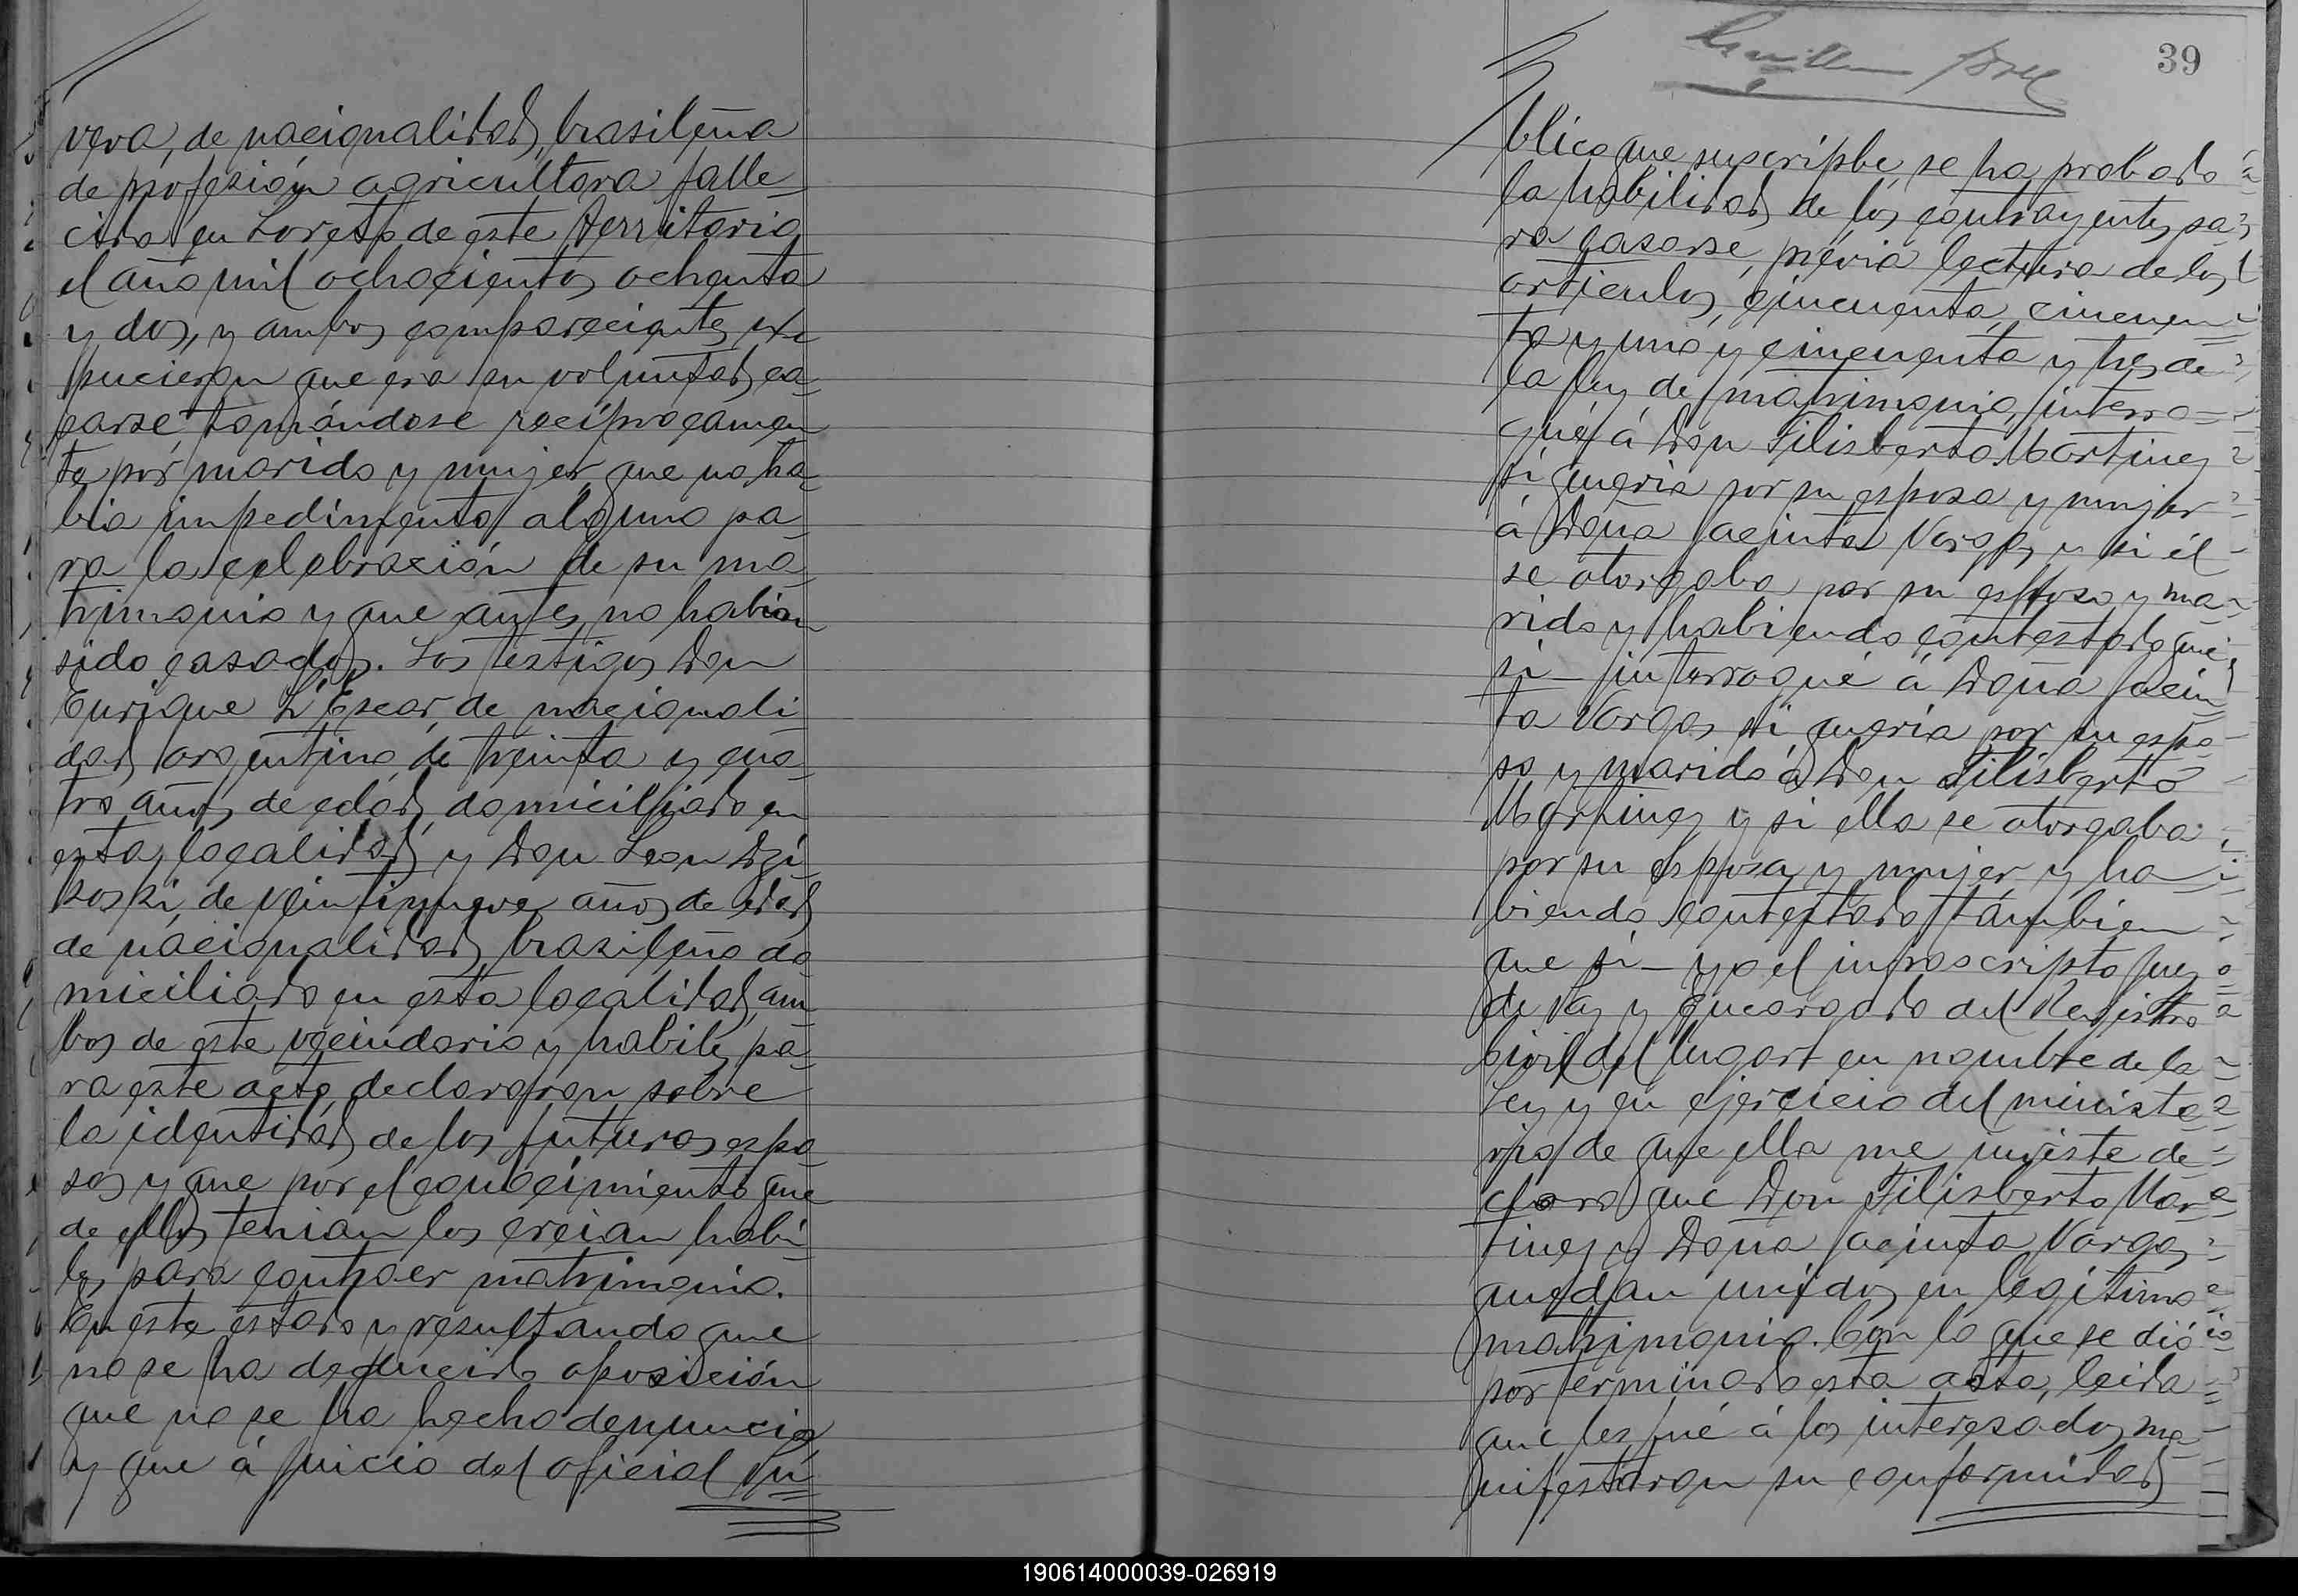 vera, de nacionalidad brasileña
de profesión agricultora falle-
cida en Loreto de este Territorio
el año mil ochocientos ochenta
y dos, y ambos comparecientes ex-
pucieron que era su voluntad ca-
sarse tomándose recíprocamen
te por marido y mujer que no ha-
bia impedimento alguno pa-
ra la celebración de su ma-
trimonio y que antes no habian
sido casados. Los testigos Don
Enrique L'Escar, de nacionali
dad argentino de treinta y cua-
tro años de edad, domiciliado en
esta localidad y Don Leon Dzi-
koski, de veintinueve años de edad
de nacionalidad brasileño do
miciliado en esta localidad, am
bos de este vecindario y habiles pa-
ra este acto, declararon sobre
la identidad de los futuros espo-
sos y que por el conocimiento que
de ellos tenian los creian habi-
les para contraer matrimonio.
En este estado y resultando que
no se ha deducido oposición
que no se ha hecho denuncia
y que á juicio del oficial pú
39
blico que suscripbe, se ha probado
la habilidad de los contrayentes pa-
ra casarse, prévia lectura de los
articulos, cincuenta, cincuen
ta y uno y cincuenta y tres de
la ley de matrimonio, interro-
gué á Don Filisberto Martinez
si queria por su esposa y mujer
á Doña Jacinta Vargas y si él
se otorgaba por su esposo y ma-
rido y habiendo contestado que
si - interrogué á Doña Jacin
ta Vargas si queria por su espo-
so y marido á Don Filisberto
Martinez y si ella se otorgaba
por su esposa y mujer y ha
biendo contestado tambien
que si - yo el infrascripto Juez
de Paz y Encargado del Registro
Civil del lugar en nombre de la
Ley y en ejercicio del ministe
rio de que ella me inviste de-
claro que Don Filisberto Mar
tinez y Doña Jacinta Vargas
quedan unidos en legitimo
matrimonio. Con lo que se dió
por terminado esta acta, leida
que les fué á los interesados ma
nifestaron su conformidad
190614000039-026919